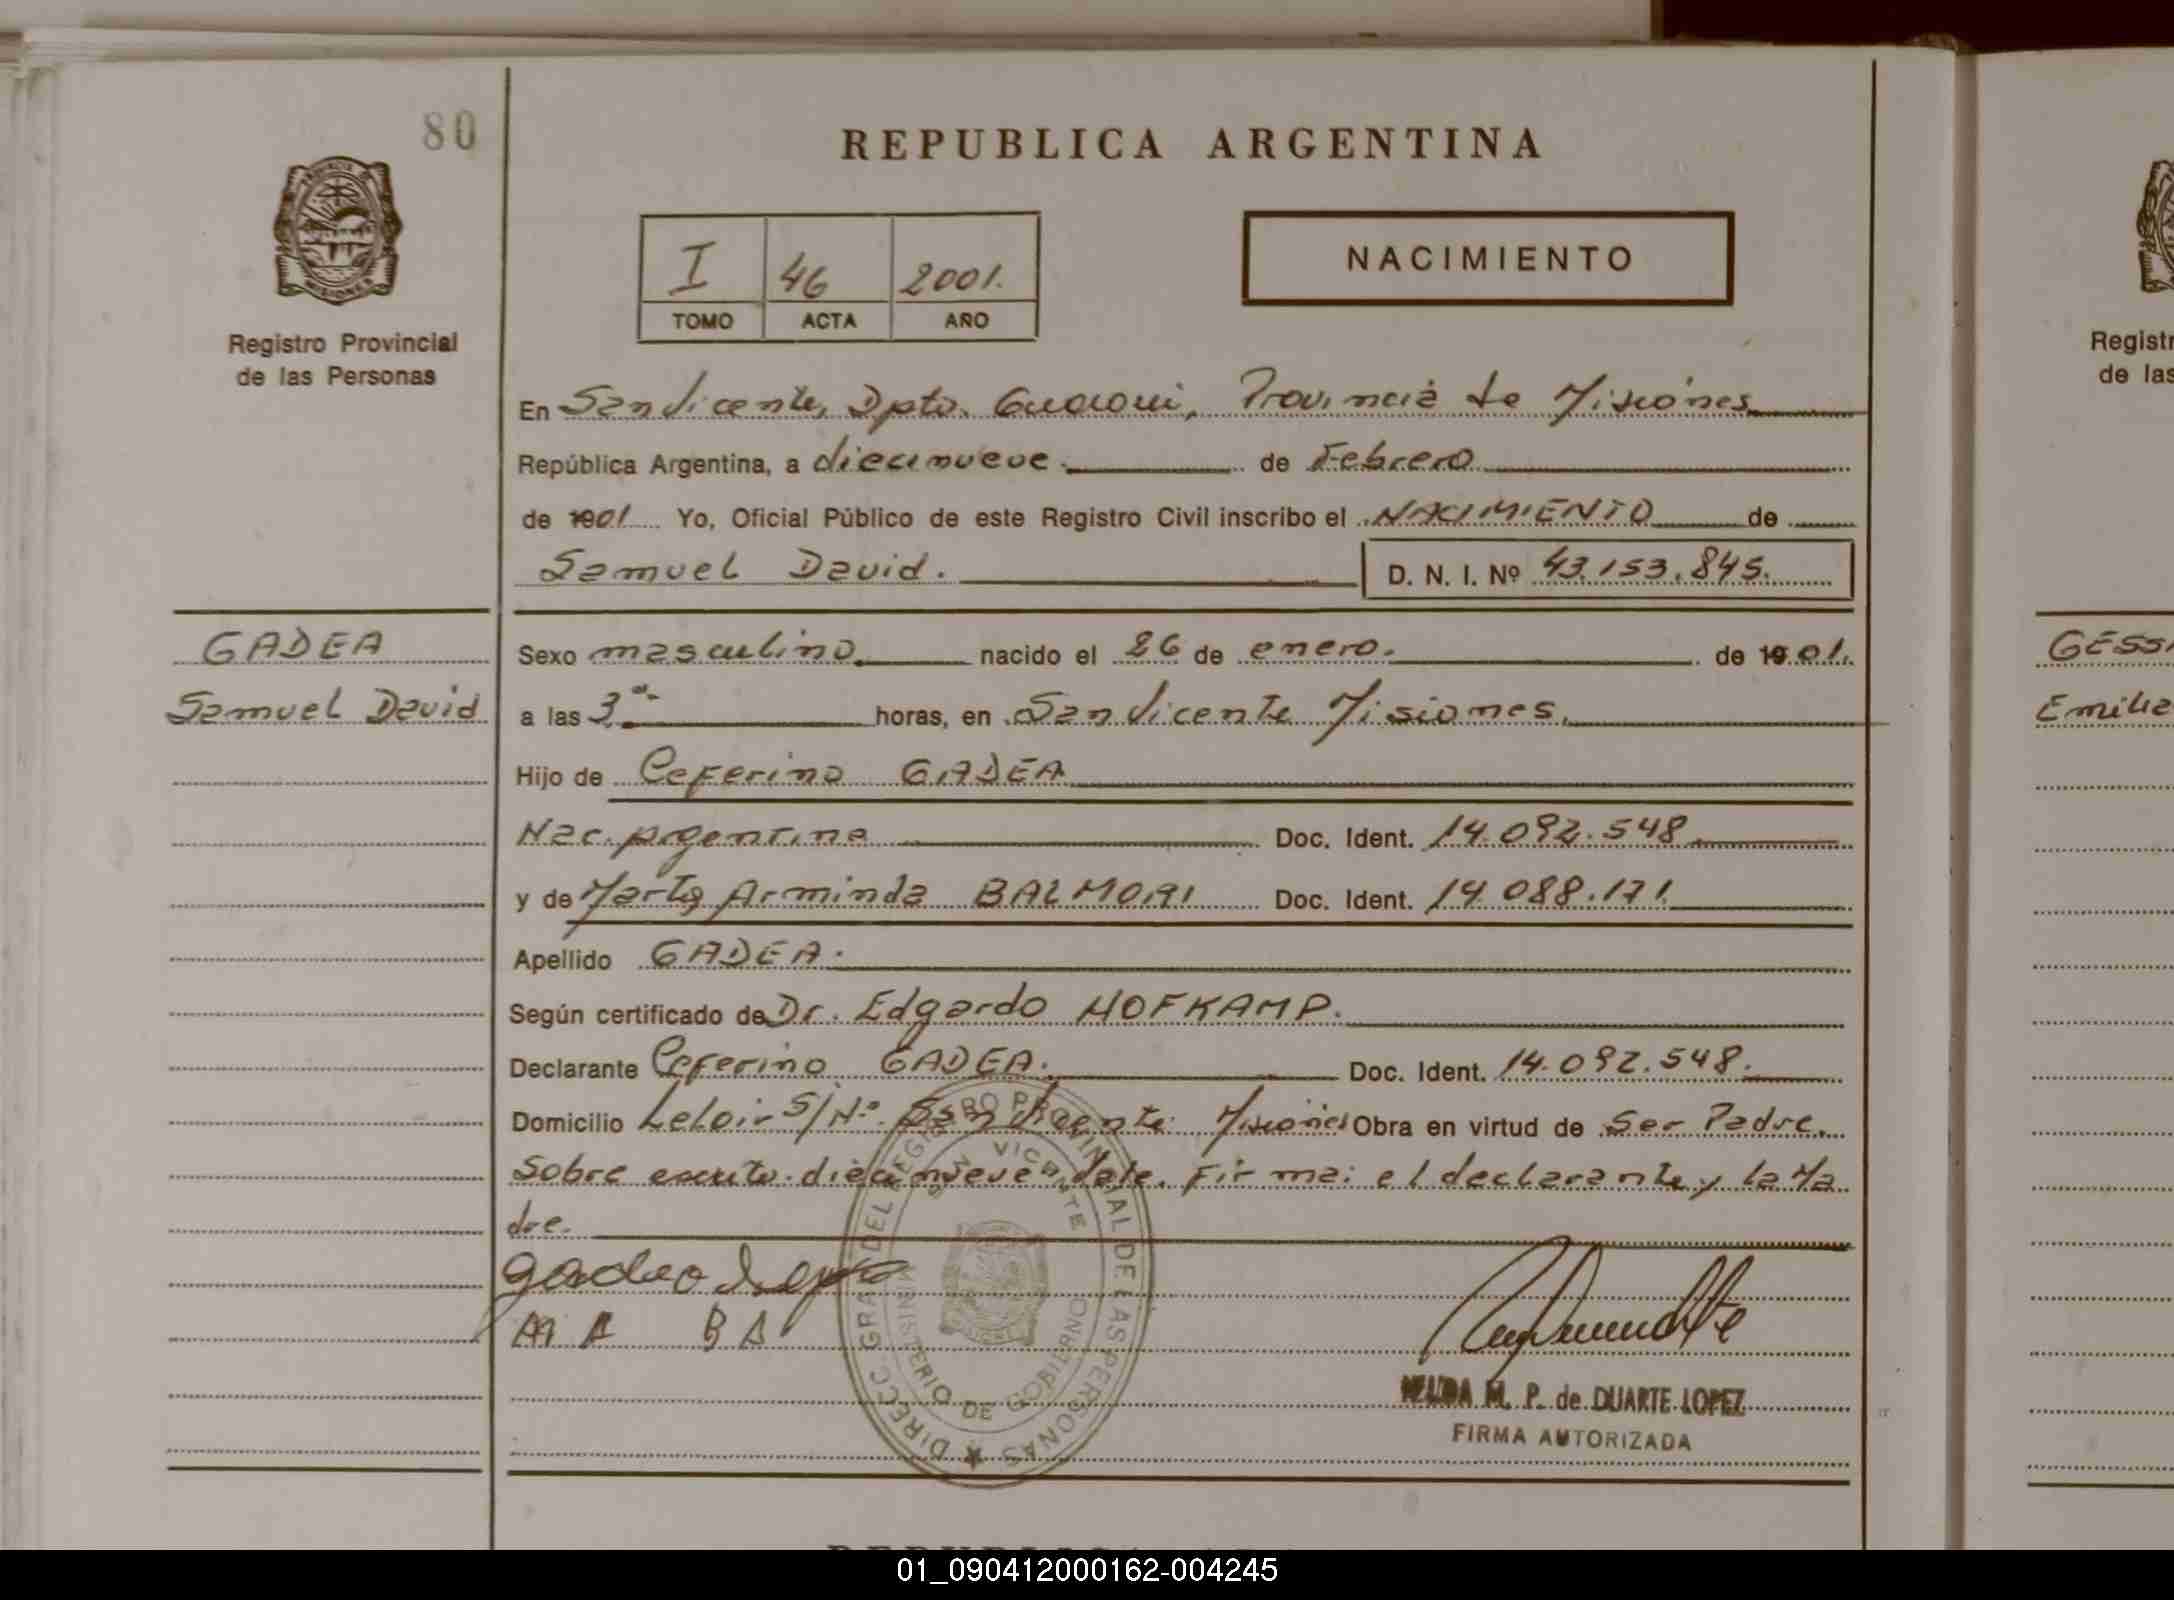 80
REPUBLICA ARGENTINA
I 46 2001.
TOMO ACTA AÑO
NACIMIENTO
PROVINCIA DE
MISIONES
Registro Provincial
de las Personas
En San Vicente, Dpto. Guaraní, Provincia de Misiones
República Argentina, a diecinueve. de Febrero
de 1901 Yo, Oficial Público de este Registro Civil inscribo el NACIMIENTO de
Samuel David. D. N. I. Nº 43.153.845.
GADEA
Samuel David
Sexo masculino nacido el 26 de enero. de 1901.
a las 3.- horas, en San Vicente Misiones.
Hijo de Ceferino GADEA
Nac. argentina Doc. Ident. 14.092.548
y de Marta Arminda BALMORI Doc. Ident. 14.088.171.
Apellido GADEA.
Según certificado de Dr. Edgardo HOFKAMP.
Declarante Ceferino GADEA. Doc. Ident. 14.092.548.
Domicilio Leloir S/Nº San Vicente Misiones Obra en virtud de Ser Padre.
Sobre escrito. diecinueve vale. Firma: el declarante y la Ma
dre.
MA BA
DIRECC. GRAL DEL REGISTRO PROVINCIAL DE LAS PERSONAS
SAN VICENTE
MINISTERIO DE GOBIERNO
M. P. de DUARTE LOPEZ
FIRMA AUTORIZADA
Registr
de las
GESS
Emilia
01_090412000162-004245